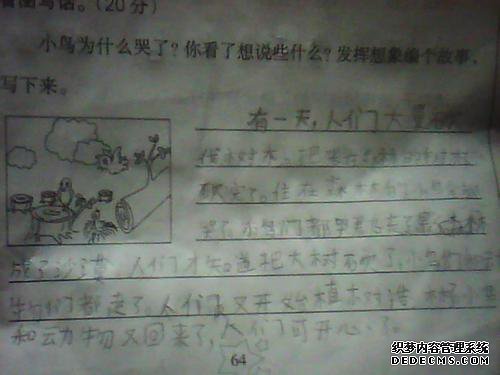 看图写话。(20分)
小鸟为什么哭了?你看了想说些什么?发挥想象编个故事,
写下来。
有一天,人们大量砍
伐树木,把
砍完了。住在森林的小鸟
哭了,小鸟们都哭着走了
成了沙漠,人们才知道把大树砍了,小鸟
物们都走了。人们又开始植树造林,小鸟
和动物又回来了,人们可开心了。
64
织梦内容管理系统
DEDECMS.COM